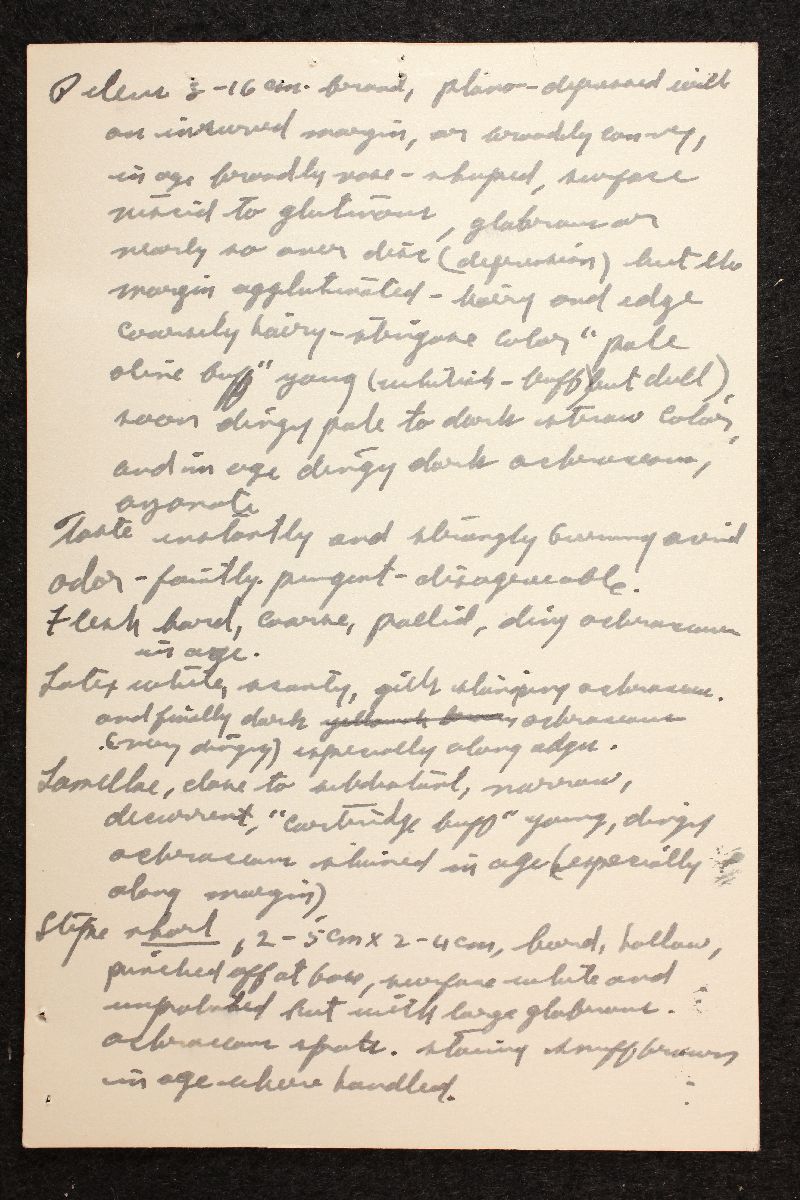 Pileus 5-16 cm. broad, plano-depressed with
an incurved margin, or broadly convex,
in age broadly vase-shaped, surface
viscid to glutinous, glabrous or
nearly so over disc (depression) but the
margin agglutinated-hairy and edge
coarsely hairy-strigose color "pale
olive buff" young (whitish-buff but dull),
soon dingy pale to dark straw color,
and in age dingy dark ochraceous,
azonate
Taste instantly and strongly burning acrid
odor-faintly pungent-disagreeable.
Flesh hard, coarse, pallid, dingy ochraceous
in age.
Latex white, scanty, gills staining ochraceous.
and finally dark yellowish brown ochraceous
(very dingy) especially along edges.
Lamellae, close to subdistant, narrow,
decurrent, "cartridge buff" young, dingy
ochraceous stained in age (especially
along margin)
Stipe short, 2-5 cm x 2-4 cm, hard, hollow,
pinched off at base, surface white and
unpolished but with large glabrous.
ochraceous spots. staining snuff brown
in age where handled.